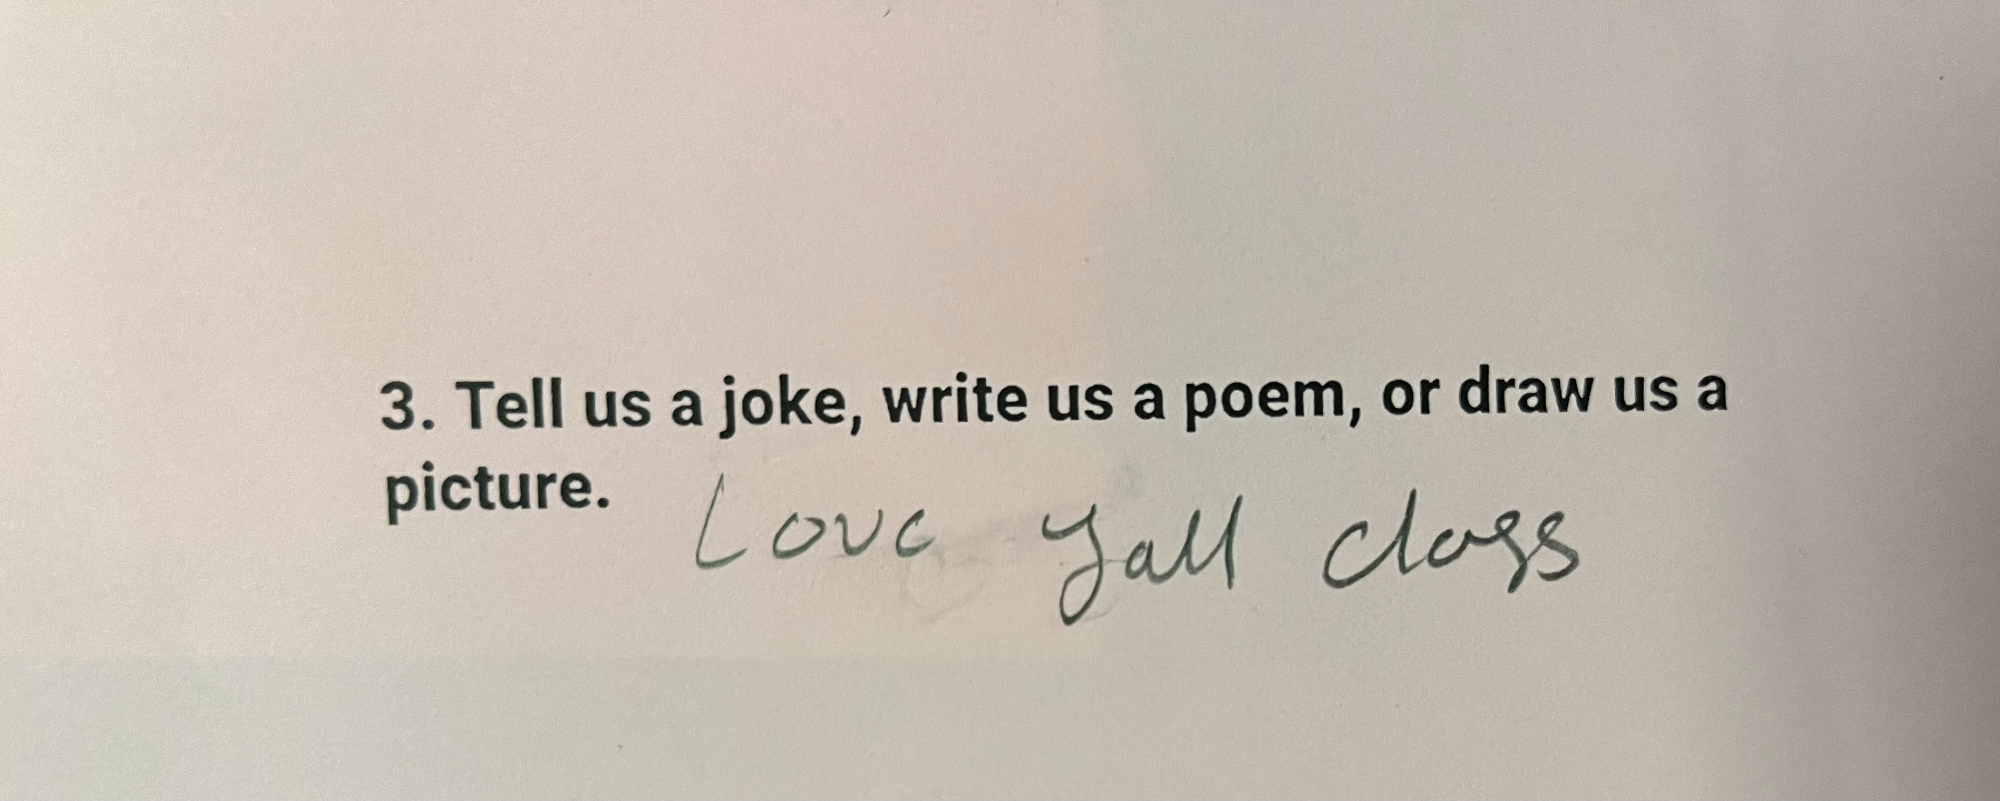 3. Tell us a joke, write us a poem, or draw us a
picture.
Love Yall class